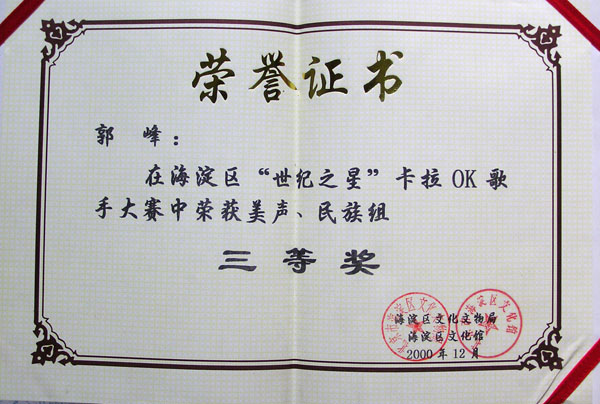 荣誉证书
郭 峰：
在海淀区“世纪之星”卡拉 OK 歌
手大赛中荣获美声、民族组
三等奖
海淀区文化文物局
海淀区文化馆
2000 年 12 月